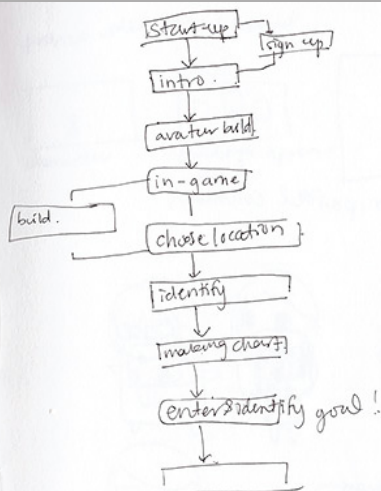 Start-up
sign up
intro.
avatur build
in-game
build.
choose location
identify
making chart
enter & identify goal!